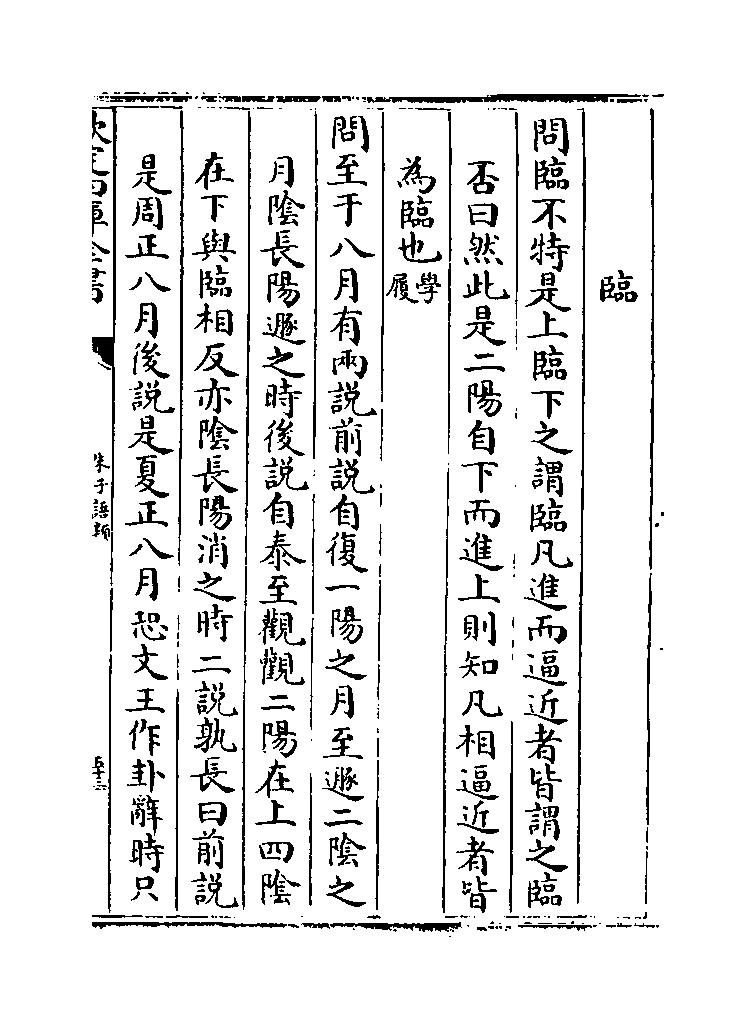 臨
問臨不特是上臨下之謂臨凡進而逼近者皆謂之臨
否曰然此是二陽自下而進上則知凡相逼近者皆
為臨也學履
問至于八月有兩説前説自復一陽之月至遯二陰之
月陰長陽遯之時後説自泰至觀觀二陽在上四陰
在下與臨相反亦陰長陽消之時二説孰長曰前説
是周正八月後説是夏正八月恐文王作卦辭時只
欽定四庫全書
朱子語類